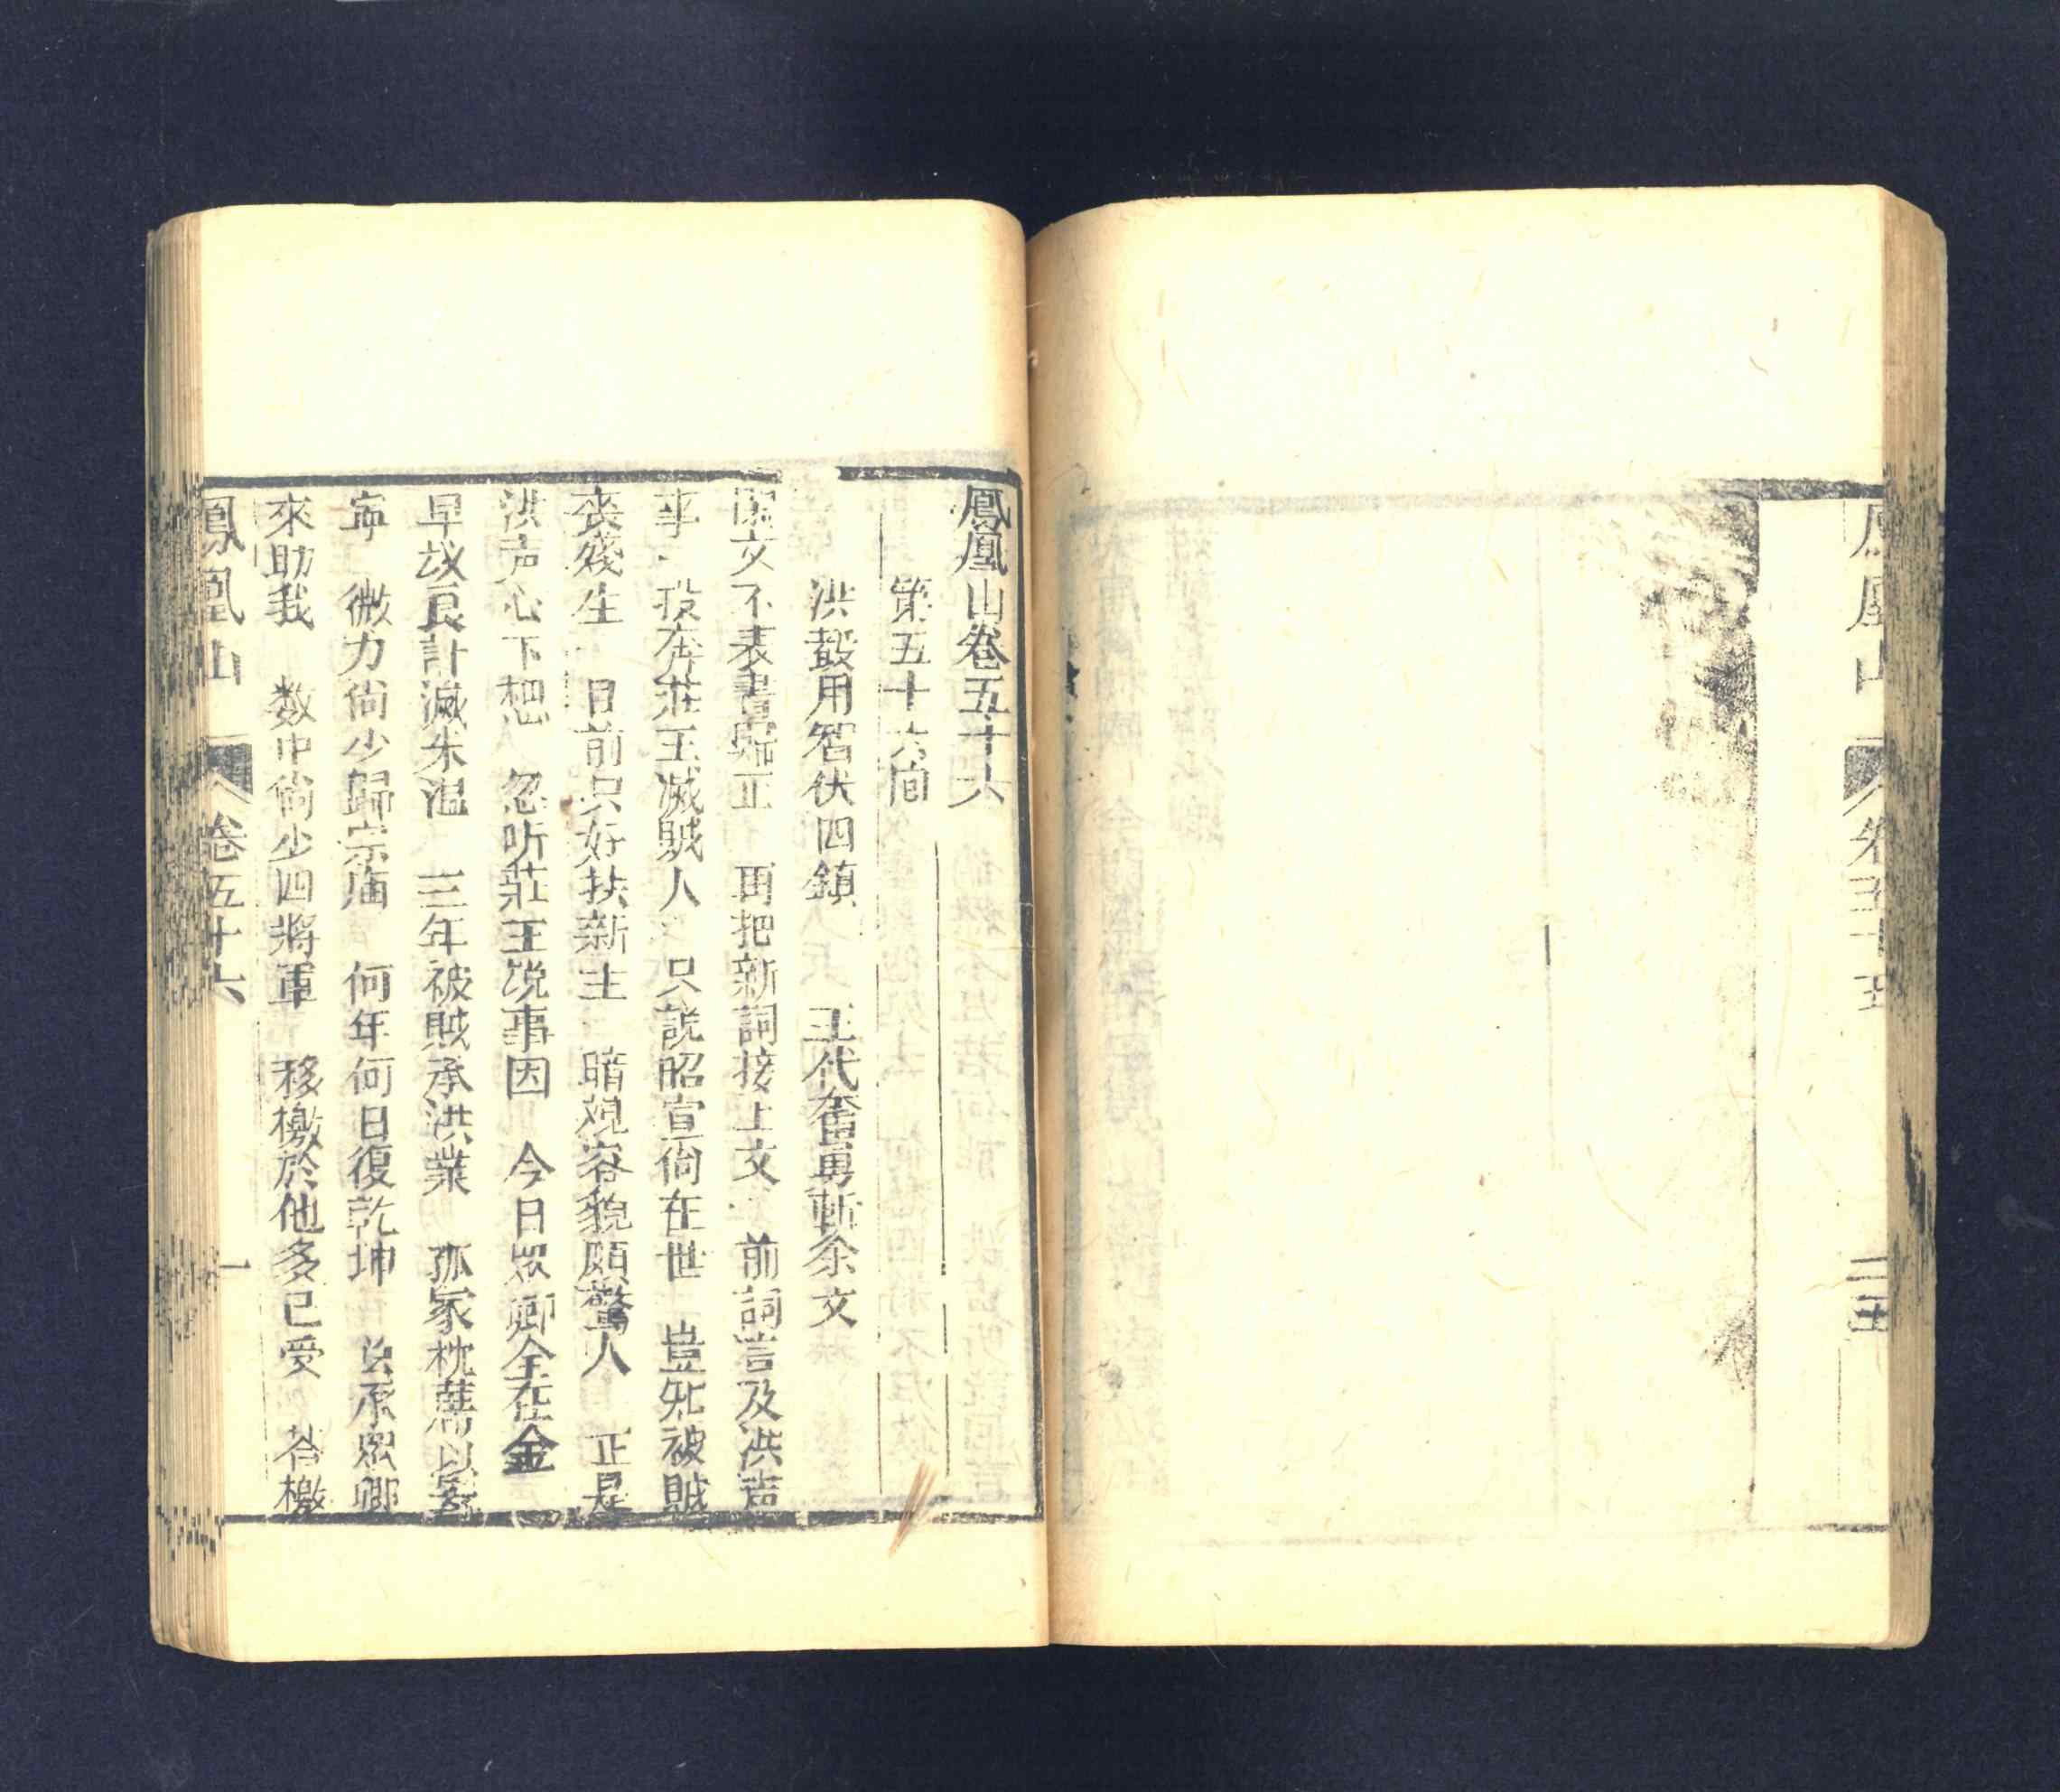 鳳凰山 卷五十五 二五
鳳凰山卷五十六
第五十六囬
洪㲄用智伏四鎮 王代奮勇斬余文
閑文不表書歸正 再把新詞接上文 前詞言及洪声
事 投奔莊王滅賊人 只説昭宣尙在世 豈知被賊
喪殘生 目前只好扶新主 暗覌容貌頗驚人 正是
洪声心下想 忽听莊王説事因 今日眾卿全在金
早設良計滅朱温 三年被賊承洪業 孤家枕蓆以
寕 微力尙少歸宗庙 何年何日復乾坤 承眾卿
來助我 数中尙少四將軍 移檄於他多已受 荅檄
鳳凰山 卷五十六 一